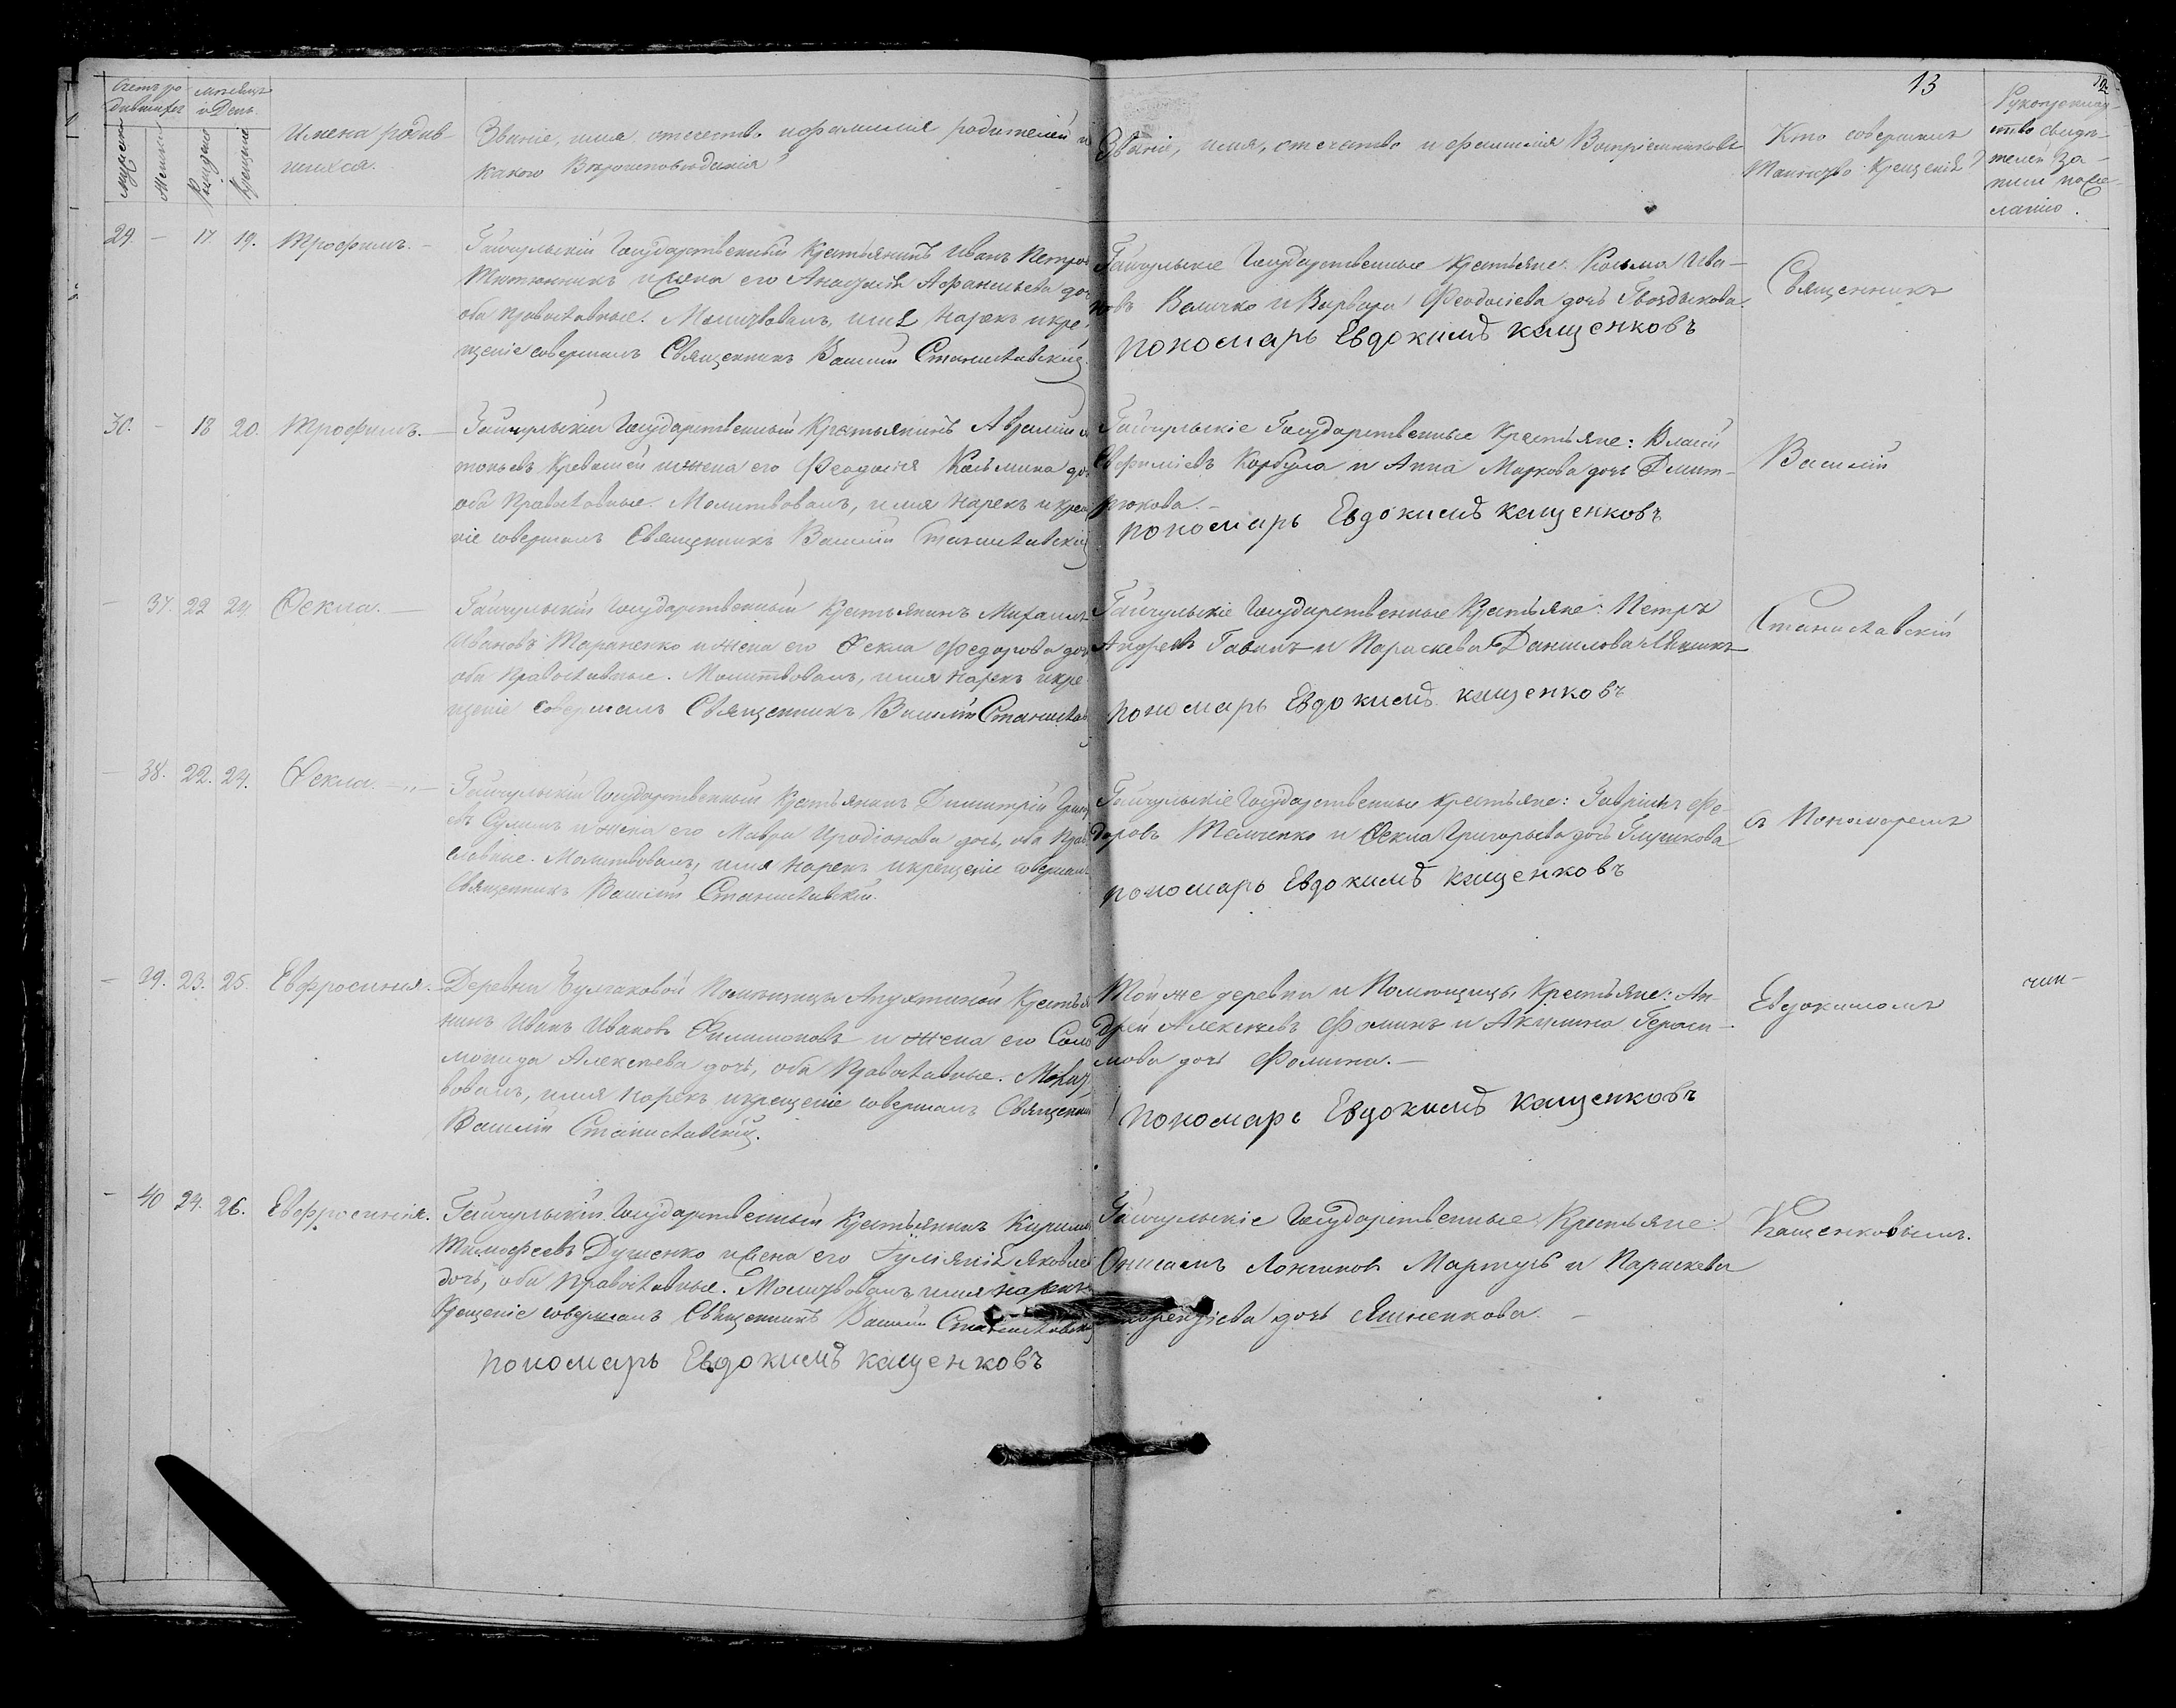 13
Счетъ ро
дившихся
мѣсяцъ
и День.
мужеска
женска
Рожденія
Крещенія
Имена родив
шихся.
Званіе, имя, отечество и фамилія родителей и
какого Вѣроисповѣданія?
Званіе, имя, отечество и фамилія Воспріемниковъ
Кто совершалъ
Таинство Крещенія?
Рукоприклад-
ство свидѣ-
телей за-
писи по же-
ланію.
29. — 17. 19. Трофимъ. —
Гайчульскій Государственный Крестьянинъ Иванъ Петров
и жена его Анастасія Афанасьева доч
оба православные. Молитвовалъ, имя нарекъ и кре-
щеніе совершалъ Священникъ Василій Станиславскій
Гайчульскіе Государственные Крестьяне: Косьма Ива-
новъ Величко и Варвара Феодосіева дочь Гвоздикова.
пономарь Евдокимъ Кащенковъ
Священникъ
30. — 18 20. Трофимъ. —
Гайчульскій Государственный Крестьянинъ Аврамій
и жена его Феодосія Косьмина до
оба православные. Молитвовалъ, имя нарекъ и крещ
ніе совершалъ Священникъ Василій Станиславскій
Гайчульскіе Государственные Крестьяне: Власій
Евфиміевъ Корбула и Анна Маркова дочь Дмит-
рюкова. —
пономарь Евдокимъ Кащенковъ
Василій
— 37. 22 24. Ѳекла. —
Гайчульскій Государственный Крестьянинъ Михаилъ
Ивановъ Тараненко и жена его Ѳекла Федорова доч
оба православные. Молитвовалъ, имя нарекъ и кре
щеніе совершалъ Священникъ Василій Станислав
Гайчульскіе Государственные Крестьяне: Петръ
и Параскева Данилова
пономарь Евдокимъ Кащенковъ
Станиславскій
— 38. 22. 24. Ѳекла. —„—
Гайчульскій Государственный Крестьянинъ Димитрій
евъ Сулимъ и жена его Мавра Иродіонова дочь, оба Прав
славные. Молитвовалъ, имя нарекъ и крещеніе совершалъ
Священникъ Василій Станиславскій.
Гайчульскіе Государственные Крестьяне: Гавріилъ Фе-
доровъ Темченко и Ѳекла Григорьева дочь Глушкова
пономарь Евдокимъ Кащенковъ
съ Пономаремъ
— 39. 23. 25. Евфросинія. —
Деревни Булгаковой Помѣщицы Апухтиной Крестья
нинъ Иванъ Ивановъ Филимоновъ и жена его Соло
монида Алексѣева дочь, оба Православные. Молит
вовалъ, имя нарекъ и крещеніе совершалъ Священник
Василій Станиславскій.
Той же деревни и Помѣщицы Крестьяне: Ан-
дрей Алексѣевъ Фоминъ и Акилина Гераси-
мова дочь Фомина. —
пономарь Евдокимъ Кащенковъ
Евдокимомъ
— 40 24. 26. Евфросинія.
Гайчульскій Государственный Крестьянинъ Кирилъ
Тимофеевъ Дученко и жена его Іуліанія Яковлев
дочь, оба православные. Молитвовалъ имя нарекъ
Крещеніе совершалъ Священникъ Василій Станиславскій
пономарь Евдокимъ Кащенковъ
Гайчульскіе Государственные Крестьяне:
Онисимъ Логиновъ и Параскева
дочь Яшненкова. —
Кащенковымъ.